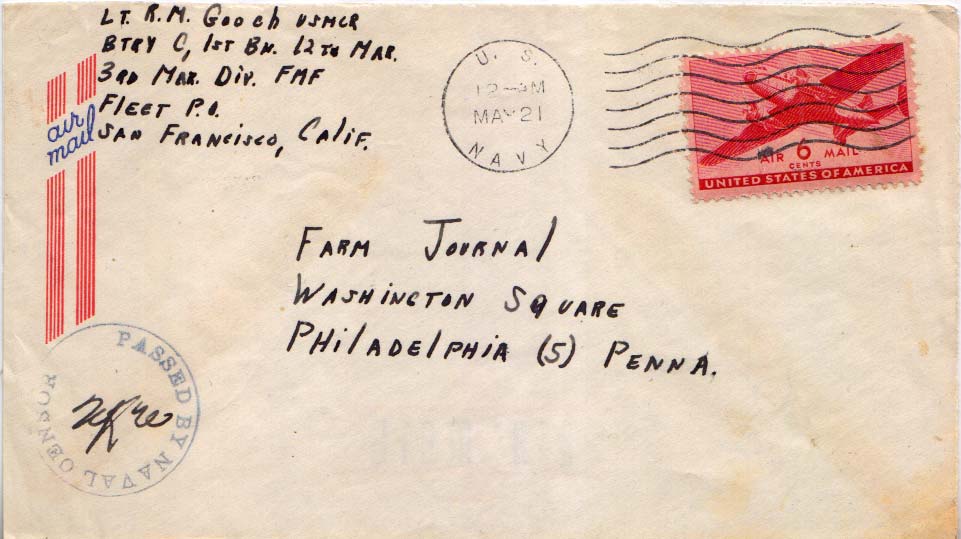 Lt. R.M. Gooch USMCR
Btry C, 1st Bn. 12th Mar.
3rd Mar. Div. FMF
Fleet P.O.
San Francisco, Calif.
air
mail
U. S.
MAY 21
NAVY
AIR 6 MAIL
CENTS
UNITED STATES OF AMERICA
Farm Journal
Washington Square
Philadelphia (5) Penna.
PASSED BY NAVAL CENSOR